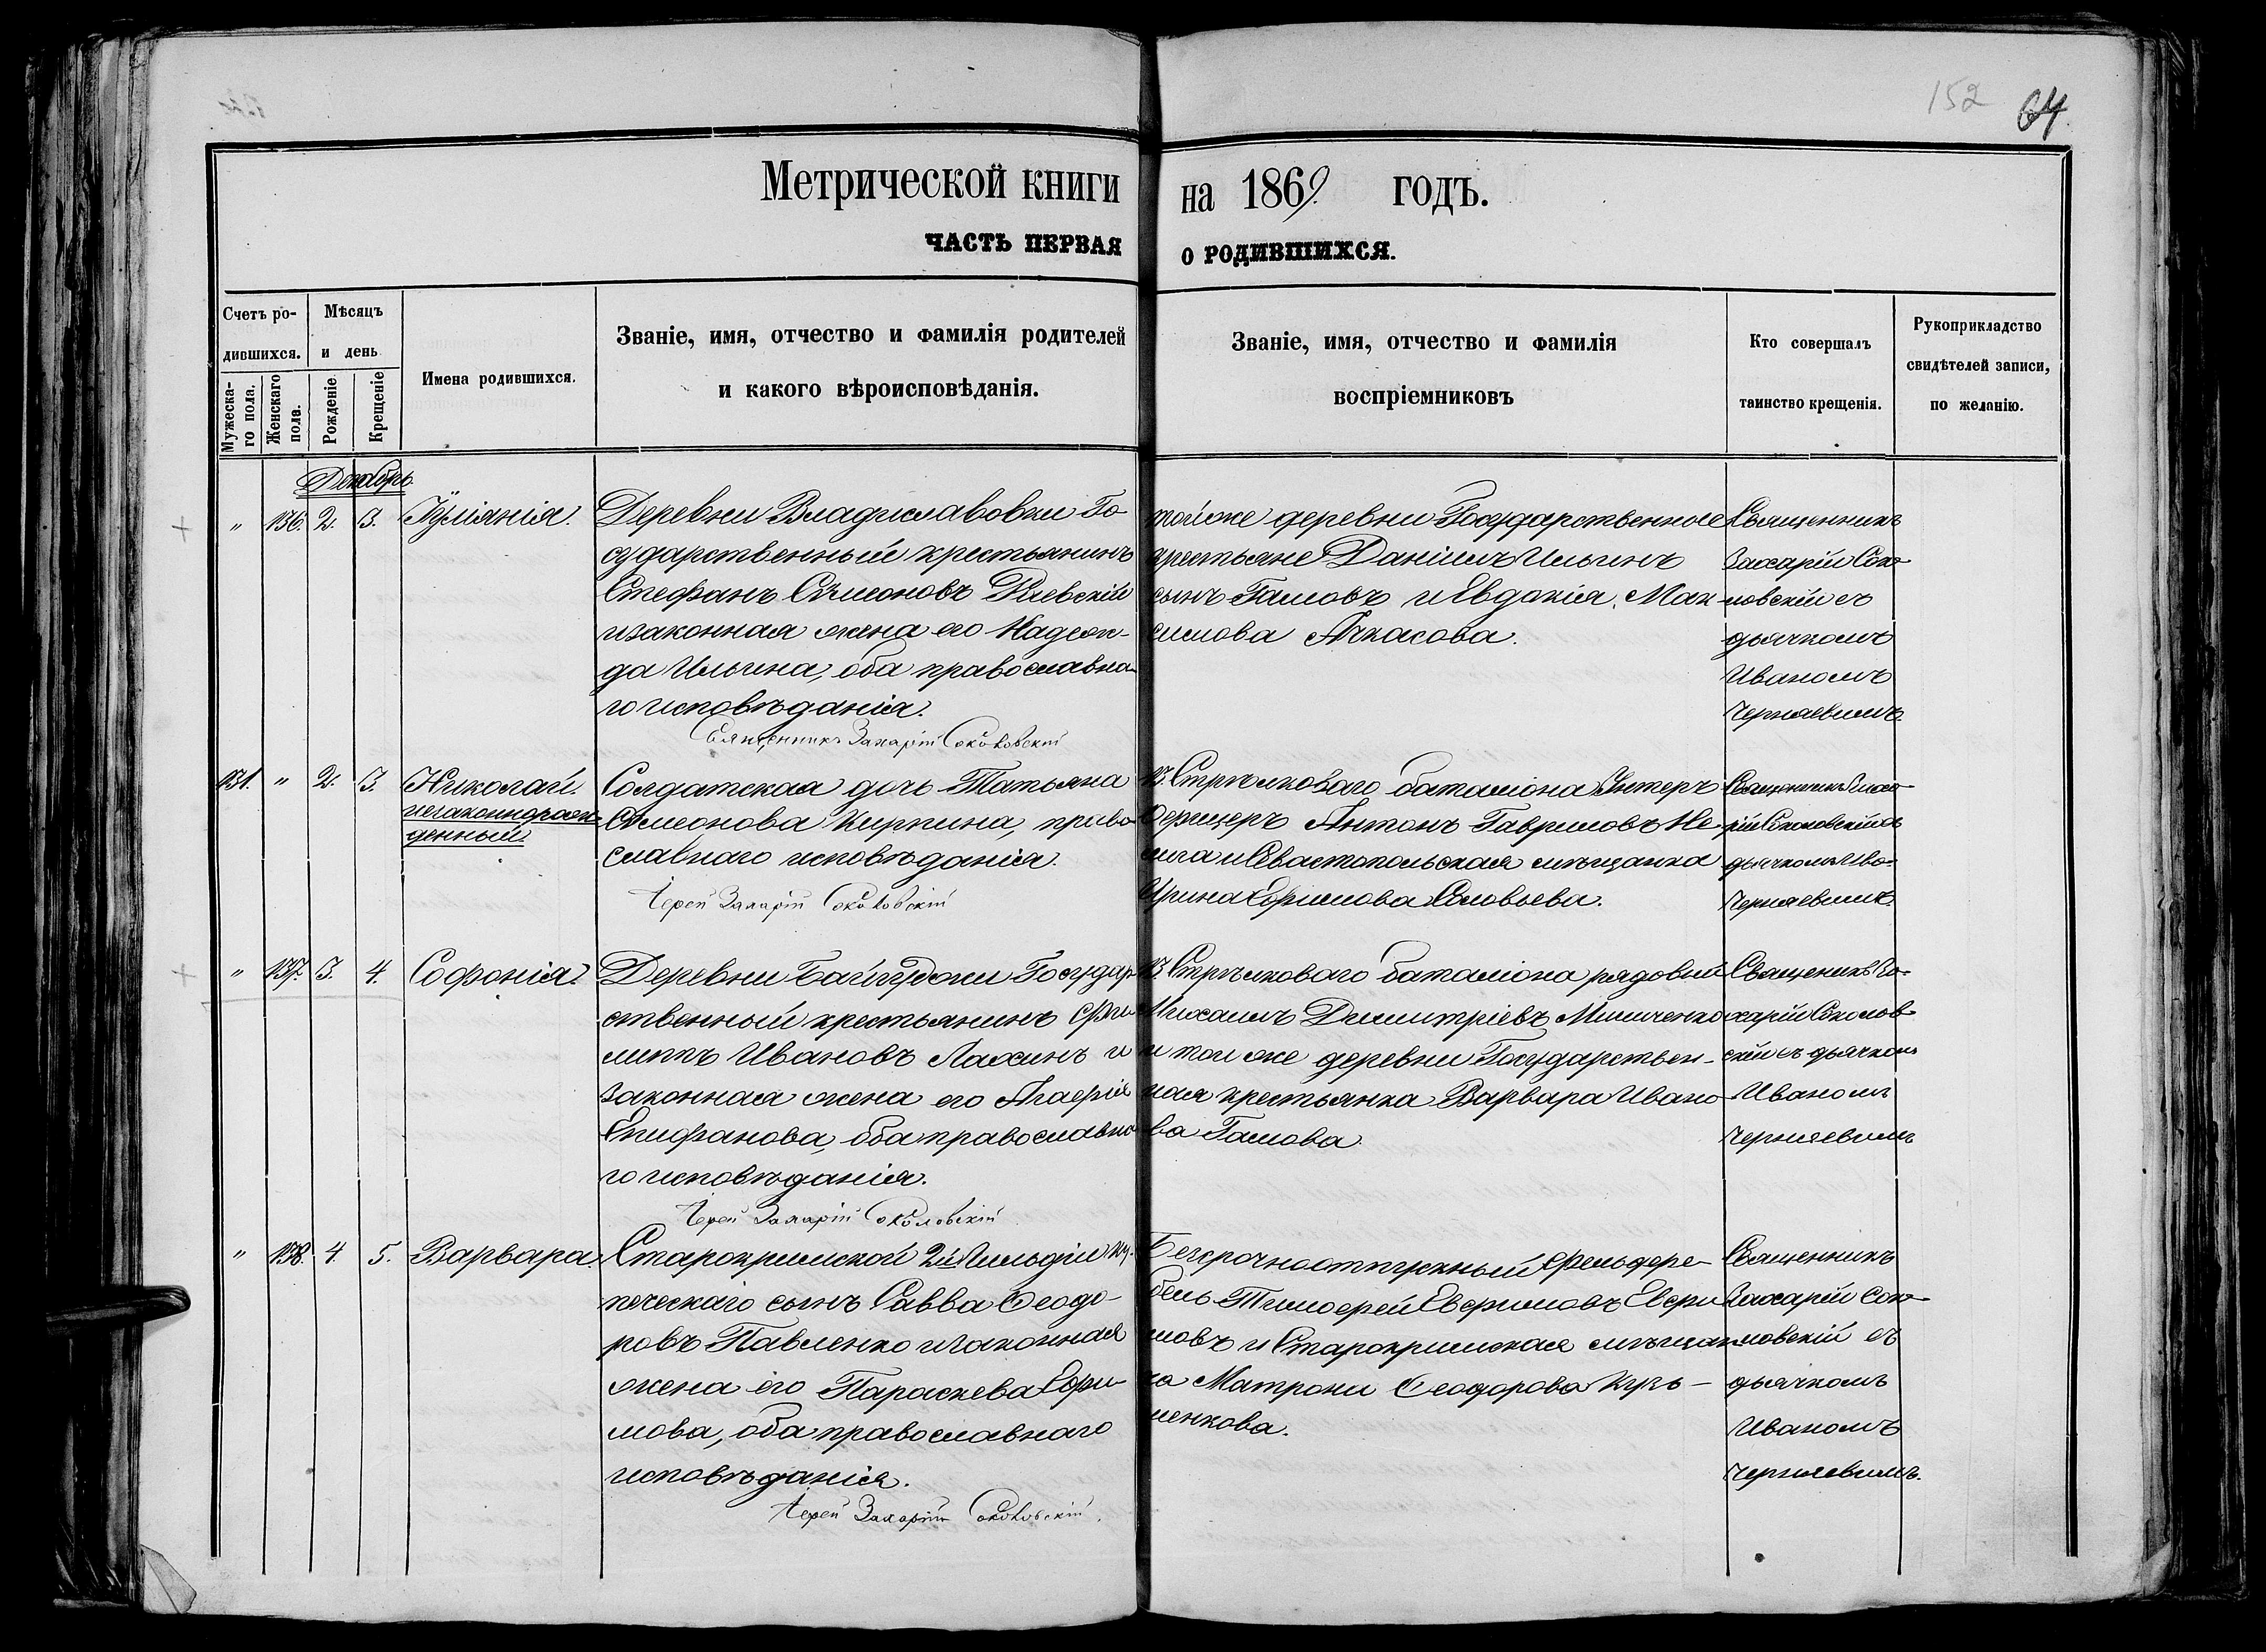 152 64.
Метрической книги на 1869. годъ.
ЧАСТЬ ПЕРВАЯ О РОДИВШИХСЯ.
Счетъ родившихся.
Мужескаго пола.
Женскаго пола.
Мѣсяцъ и день
Рожденіе.
Крещеніе
Имена родившихся.
Званіе, имя, отчество и фамилія родителей
и какого вѣроисповѣданія.
Званіе, имя, отчество и фамилія
воспріемниковъ
Кто совершалъ
таинство крещенія.
Рукоприкладство
свидѣтелей записи,
по желанію.
Декабрь.
„ 136. 2. 3. Іуліанія.
Деревни Владиславовки Го-
сударственный крестьянинъ
Стефанъ Сѵмеоновъ
и законная жена его Надеж-
да Ильина, оба православна-
го исповѣданія.
Священникъ Захарій Соколовскій
той же деревни Государственные
крестьяне Даніилъ Ильинъ
сынъ Гамовъ и Евдокія Мак-
симова Ачкасова.
Священникъ
Захарій Соко-
ловскій съ
дьячкомъ
Иваномъ
Черняевимъ.
131. „ 2. 3. Николай
незаконнорож-
денный.
Солдатская дочь Татьяна
Сѵмеонова Киркина, право-
славнаго исповѣданія.
Іерей Захарій Соколовскій
13. Стрѣлковаго баталіона Унтеръ
Офицеръ Антонъ Гавриловъ Не-
и Севастопольская мѣщанка
Ирина Ефимова Соловьева.
Священникъ Заха-
рій Соколовскій съ
дьячкомъ Ива-
Черняевимъ.
„ 137. 3. 4. Софонія.
Деревни Байбуги Государ-
ственный крестьянинъ Фи-
липпъ Ивановъ Лахинъ и
законная жена его Агафія
Епифанова, оба православна-
го исповѣданія.
Іерей Захарій Соколовскій
13 Стрѣлковаго баталіона рядовый
Михаилъ Димитріевъ Миличенко
и той же деревни Государствен-
ная крестьянка Варвара Ивано-
ва Гамова
Священикъ За-
харій Соколов-
скій съ дьячкомъ
Иваномъ
Черняевимъ
„ 138. 4. 5. Варвара
Старокрымской 2й Гильдіи ку-
печескаго сынъ Савва Ѳеодо-
ровъ Павленко и законная
жена его Параскева Ефи-
мова, оба православнаго
исповѣданія.
Іерей Захарій Соколовскій.
Безсрочноотпускный Фельдфе-
бель Тимофей Евфимовъ Евфи-
мовъ и Старокрымская мѣщан-
ка Матрона Ѳеодорова Кузь-
менкова.
Священникъ
Захарій Соко-
ловскій съ
дьячкомъ
Иваномъ
Черняевимъ.